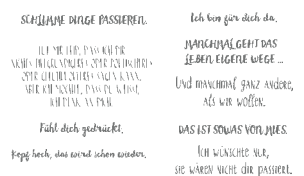 SCHLIMME DINGE PASSIEREN.
ES TUT MIR LEID, DASS ICH DIR
NICHTS INTELLIGENTERES ODER POETISCHERES
ODER
SAGEN KANN,
ABER ICH MÖCHTE, DASS DU WEISST,
ICH DENK AN DICH.
Fühl dich gedrückt.
Kopf hoch, das wird schon wieder.
Ich bin für dich da.
MANCHMAL GEHT DAS
LEBEN EIGENE WEGE ...
Und manchmal ganz andere,
als wir wollen.
DAS IST SOWAS VON MIES.
Ich wünschte nur,
sie wären nicht dir passiert.